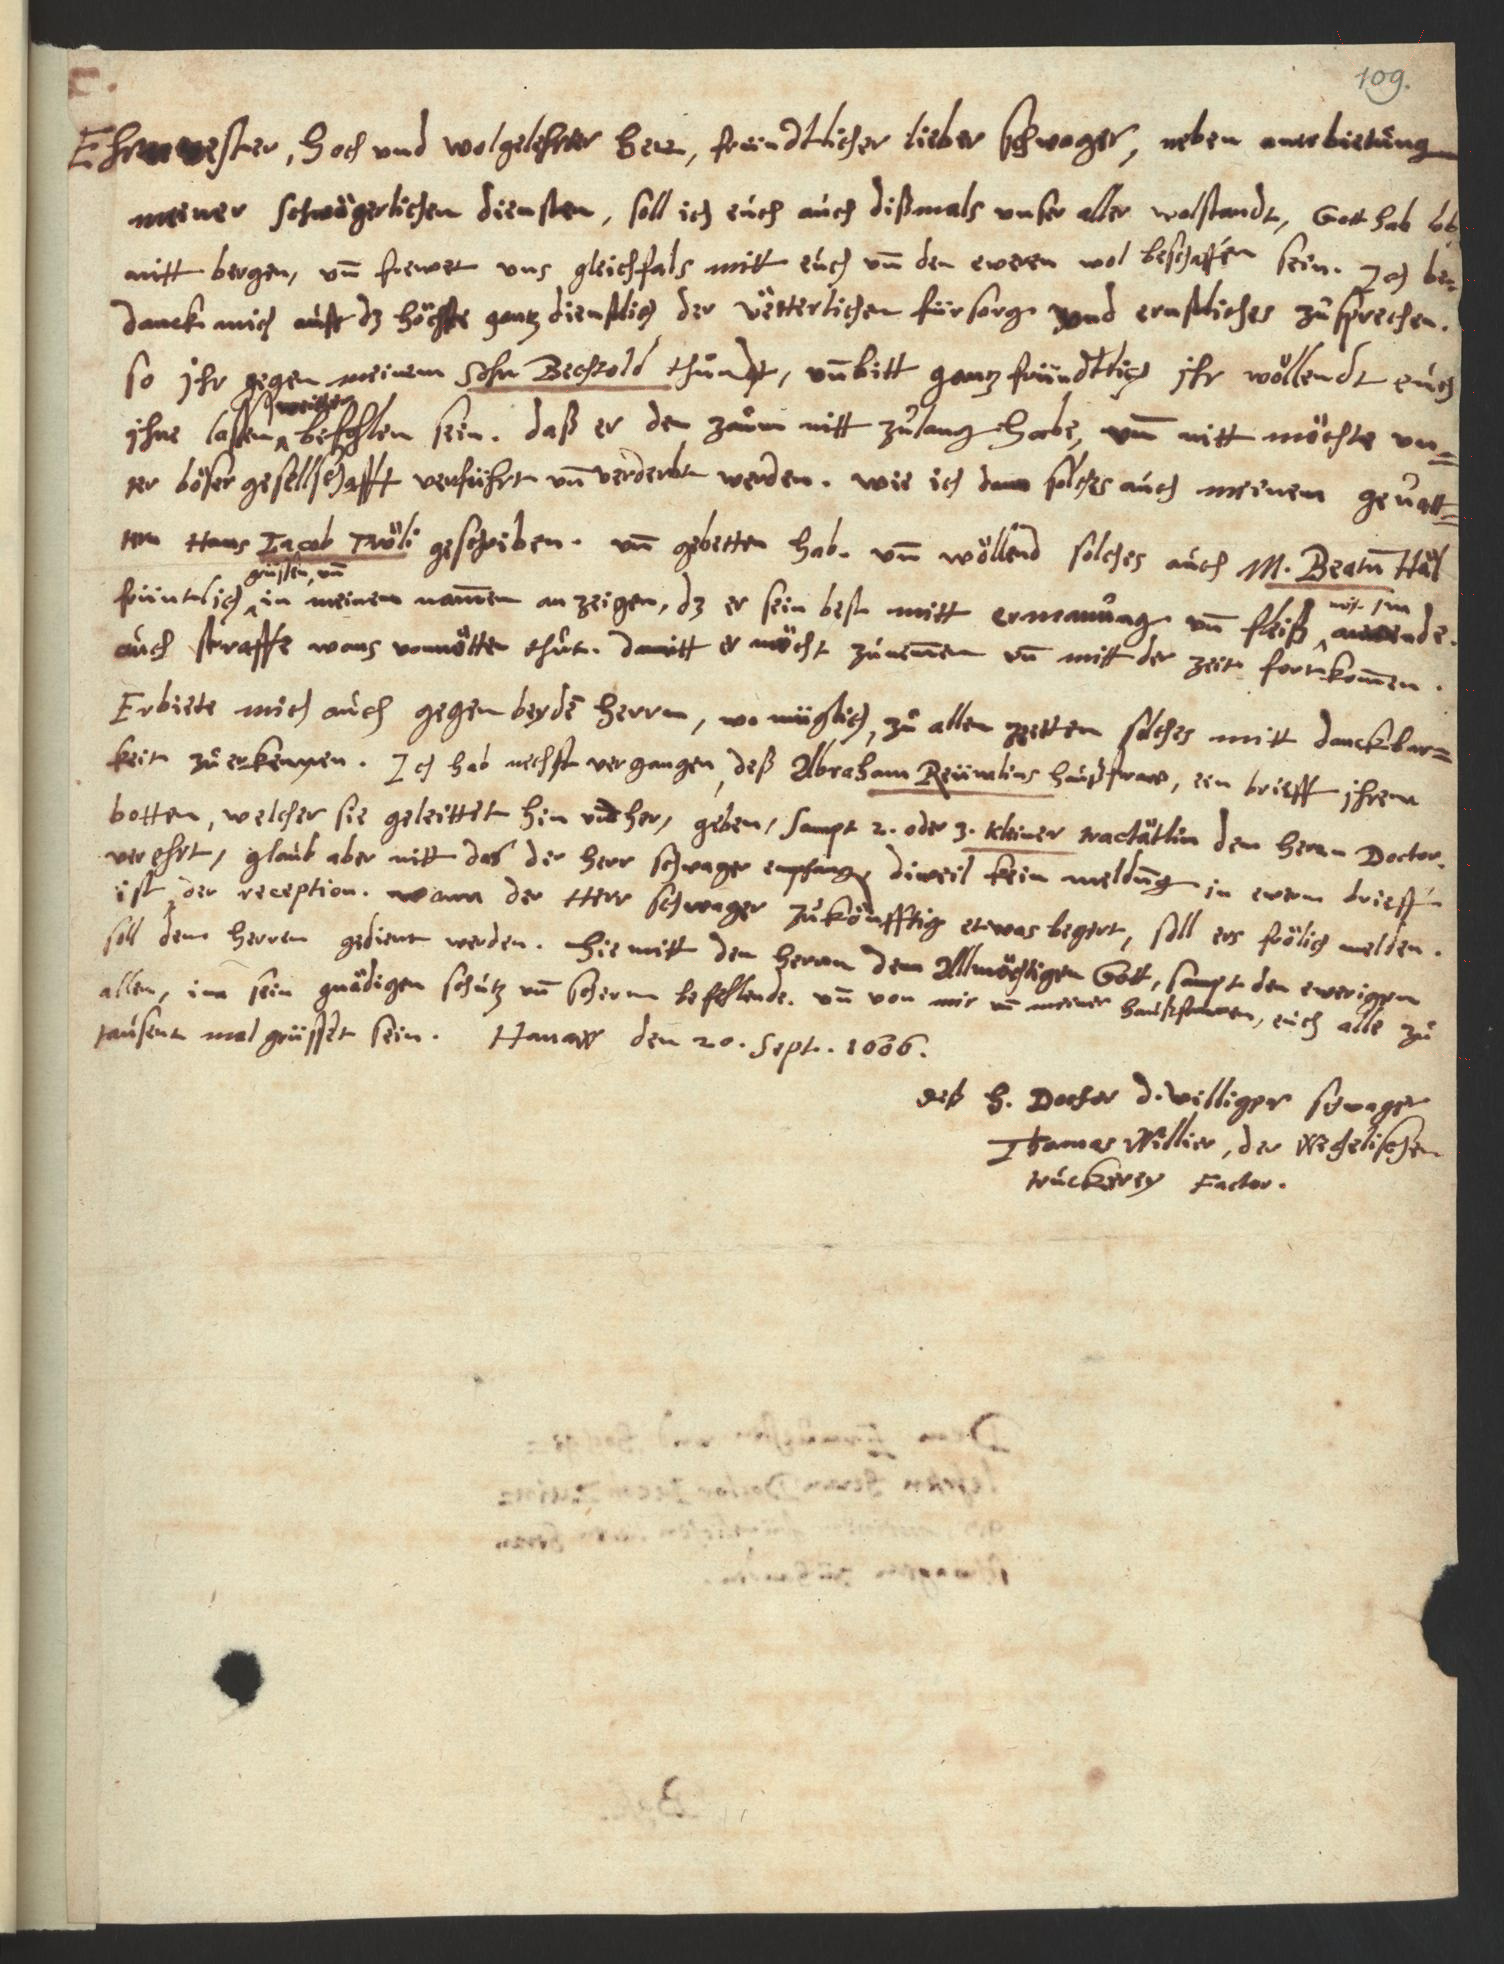 109.
Ehrnvester, hoch und wolgelehrter herr, fründtlicher lieber schwager, neben anerbietung
meiner schwägerlichen diensten, soll ich eüch aüch dißmals vnser aller wolstandt, Gott hab lob
nitt bergen, vn̄ frewet vns gleichfals mitt eüch vn̄ den eweren wol beschaffen sein. Ich be-
danck mich auff dz höchste gantz dienstlich der vetterlichen fürsorg vnd ernstliches zůsprechen.
so ihr gegen meinem Sohn Bechtold thůndt, vn̄ bitt gantz fründtlich ihr wöllendt eüch
weitter
ihne lassen befohlen sein. daß er den zaům nitt zůlang habe, vn̄ nitt möchte vn=
ter böser gesellschafft verführt vn̄ verderbt werden. wie ich dann solches aüch meinem gevatt=
tern Hans Jacob geschriben. vn̄ gebetten hab. vn̄ wöllend solches aüch M. Beatū Häl
grüssen, vn̄
früntlich in meinem nam̄en anzeigen, dz er sein best mitt ermanůng vn̄ fleiß mit im anwende.
aüch straffe wans vonnötten thůt. damitt er möcht zůnem̄en vn̄ mitt der zeit fortkom̄en.
Erbiete mich aüch gegen beydē herren, wo müglich, zů allen zeitten solches mitt danckbar=
keit zů erkennen. Ich hab nechst vergangen, deß Abraham haüßfrawe, ein brieff ihrem
botten, welcher sie geleittet hin vnd her, geben, sampt 2. oder 3. kleiner tractätlin dem herrn Doctor.
verehrt, glaüb aber nitt das der herr schwager empfangē, dieweil kein meldūng in ewerm brieff
ist der reception. wann der Herr schwager zůkönfftig etwas begert, soll ers frölich melden.
soll dem herren gedient werden. hiemitt den herrn dem Allmächtigen Gott, sampt den ewerigen
allen, inn sein gnädigen schůtz vn̄ scherm befehlende. vn̄ von mir vn̄ meiner haußfrawen, eüch alle zů
taüsent mal grüsset sein. Hanaw den 20. Sept. 1606.
deß H. Doctor d. williger schwager
Thomas Willier, der Wechelischen
trückerey Factor.